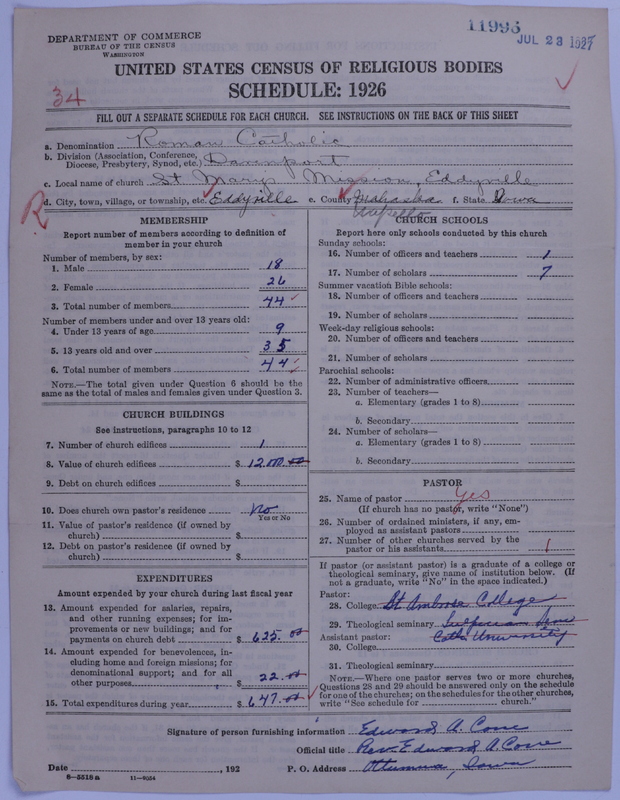 DEPARTMENT OF COMMERCE
BUREAU OF THE CENSUS
WASHINGTON
11995
JUL 23 1927
34
UNITED STATES CENSUS OF RELIGIOUS BODIES
SCHEDULE: 1926
FILL OUT A SEPARATE SCHEDULE FOR EACH CHURCH. SEE INSTRUCTIONS ON THE BACK OF THIS SHEET
a. Denomination Roman Catholic
b. Division (Association, Conference, Diocese, Presbytery, Synod, etc.) Davenport
c. Local name of church St Marys Mission, Eddyville
R
d. City, town, village, or township, etc. Eddyville e. County Mahaska f. State Iowa
Wapello
MEMBERSHIP
Report number of members according to definition of
member in your church
Number of members, by sex:
1. Male 18
2. Female 26
3. Total number of members 44
Number of members under and over 13 years old:
4. Under 13 years of age 9
5. 13 years old and over 35
6. Total number of members 44
NOTE.—The total given under Question 6 should be the
same as the total of males and females given under Question 3.
CHURCH BUILDINGS
See instructions, paragraphs 10 to 12
7. Number of church edifices 1
8. Value of church edifices $ 1200.00
9. Debt on church edifices $
10. Does church own pastor's residence No
Yes or No
11. Value of pastor's residence (if owned by
church) $
12. Debt on pastor's residence (if owned by
church) $
EXPENDITURES
Amount expended by your church during last fiscal year
13. Amount expended for salaries, repairs,
and other running expenses; for im-
provements or new buildings; and for
payments on church debt $ 625.00
14. Amount expended for benevolences, in-
cluding home and foreign missions; for
denominational support; and for all
other purposes $ 22.00
15. Total expenditures during year $ 647.00
CHURCH SCHOOLS
Report here only schools conducted by this church
Sunday schools:
16. Number of officers and teachers 1
17. Number of scholars 7
Summer vacation Bible schools:
18. Number of officers and teachers
19. Number of scholars
Week-day religious schools:
20. Number of officers and teachers
21. Number of scholars
Parochial schools:
22. Number of administrative officers
23. Number of teachers—
a. Elementary (grades 1 to 8)
b. Secondary
24. Number of scholars—
a. Elementary (grades 1 to 8)
b. Secondary
PASTOR
25. Name of pastor Yes
(If church has no pastor, write "None")
26. Number of ordained ministers, if any, em-
ployed as assistant pastors
27. Number of other churches served by the
pastor or his assistants 1
If pastor (or assistant pastor) is a graduate of a college or
theological seminary, give name of institution below. (If
not a graduate, write "No" in the space indicated.)
Pastor:
28. College St Ambrose College
29. Theological seminary Sulpician
Assistant pastor: Cath University
30. College
31. Theological seminary
NOTE.—Where one pastor serves two or more churches,
Questions 28 and 29 should be answered only on the schedule
for one of the churches; on the schedules for the other churches,
write "See schedule for church."
Signature of person furnishing information Edward A. Cone
Official title Rev. Edward A. Cone
Date , 192 P. O. Address Ottumwa, Iowa
8-5518a 11-6034